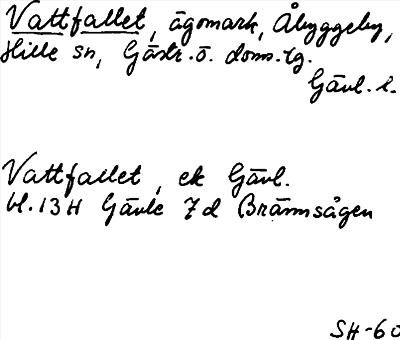 Vattfallet, ägomark, Åbyggeby,
Hille sn, Gästr.ö. doms.tg.
Gävl. l.
Vattfallet, ek Gävl.
bl. 13 H Gävle 7 d Brännsågen
SH-60